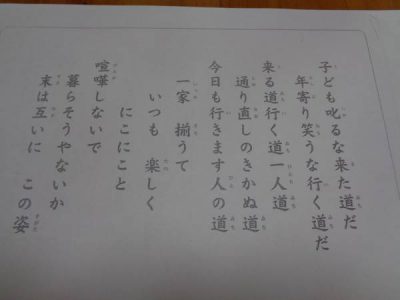 子ども叱るな来た道だ
年寄り笑うな行く道だ
来る道行く道一人道
通り直しのきかぬ道
今日も行きます人の道
一家 揃うて
いつも 楽しく
にこにこと
喧嘩しないで
暮らそうやないか
末は互いに この姿